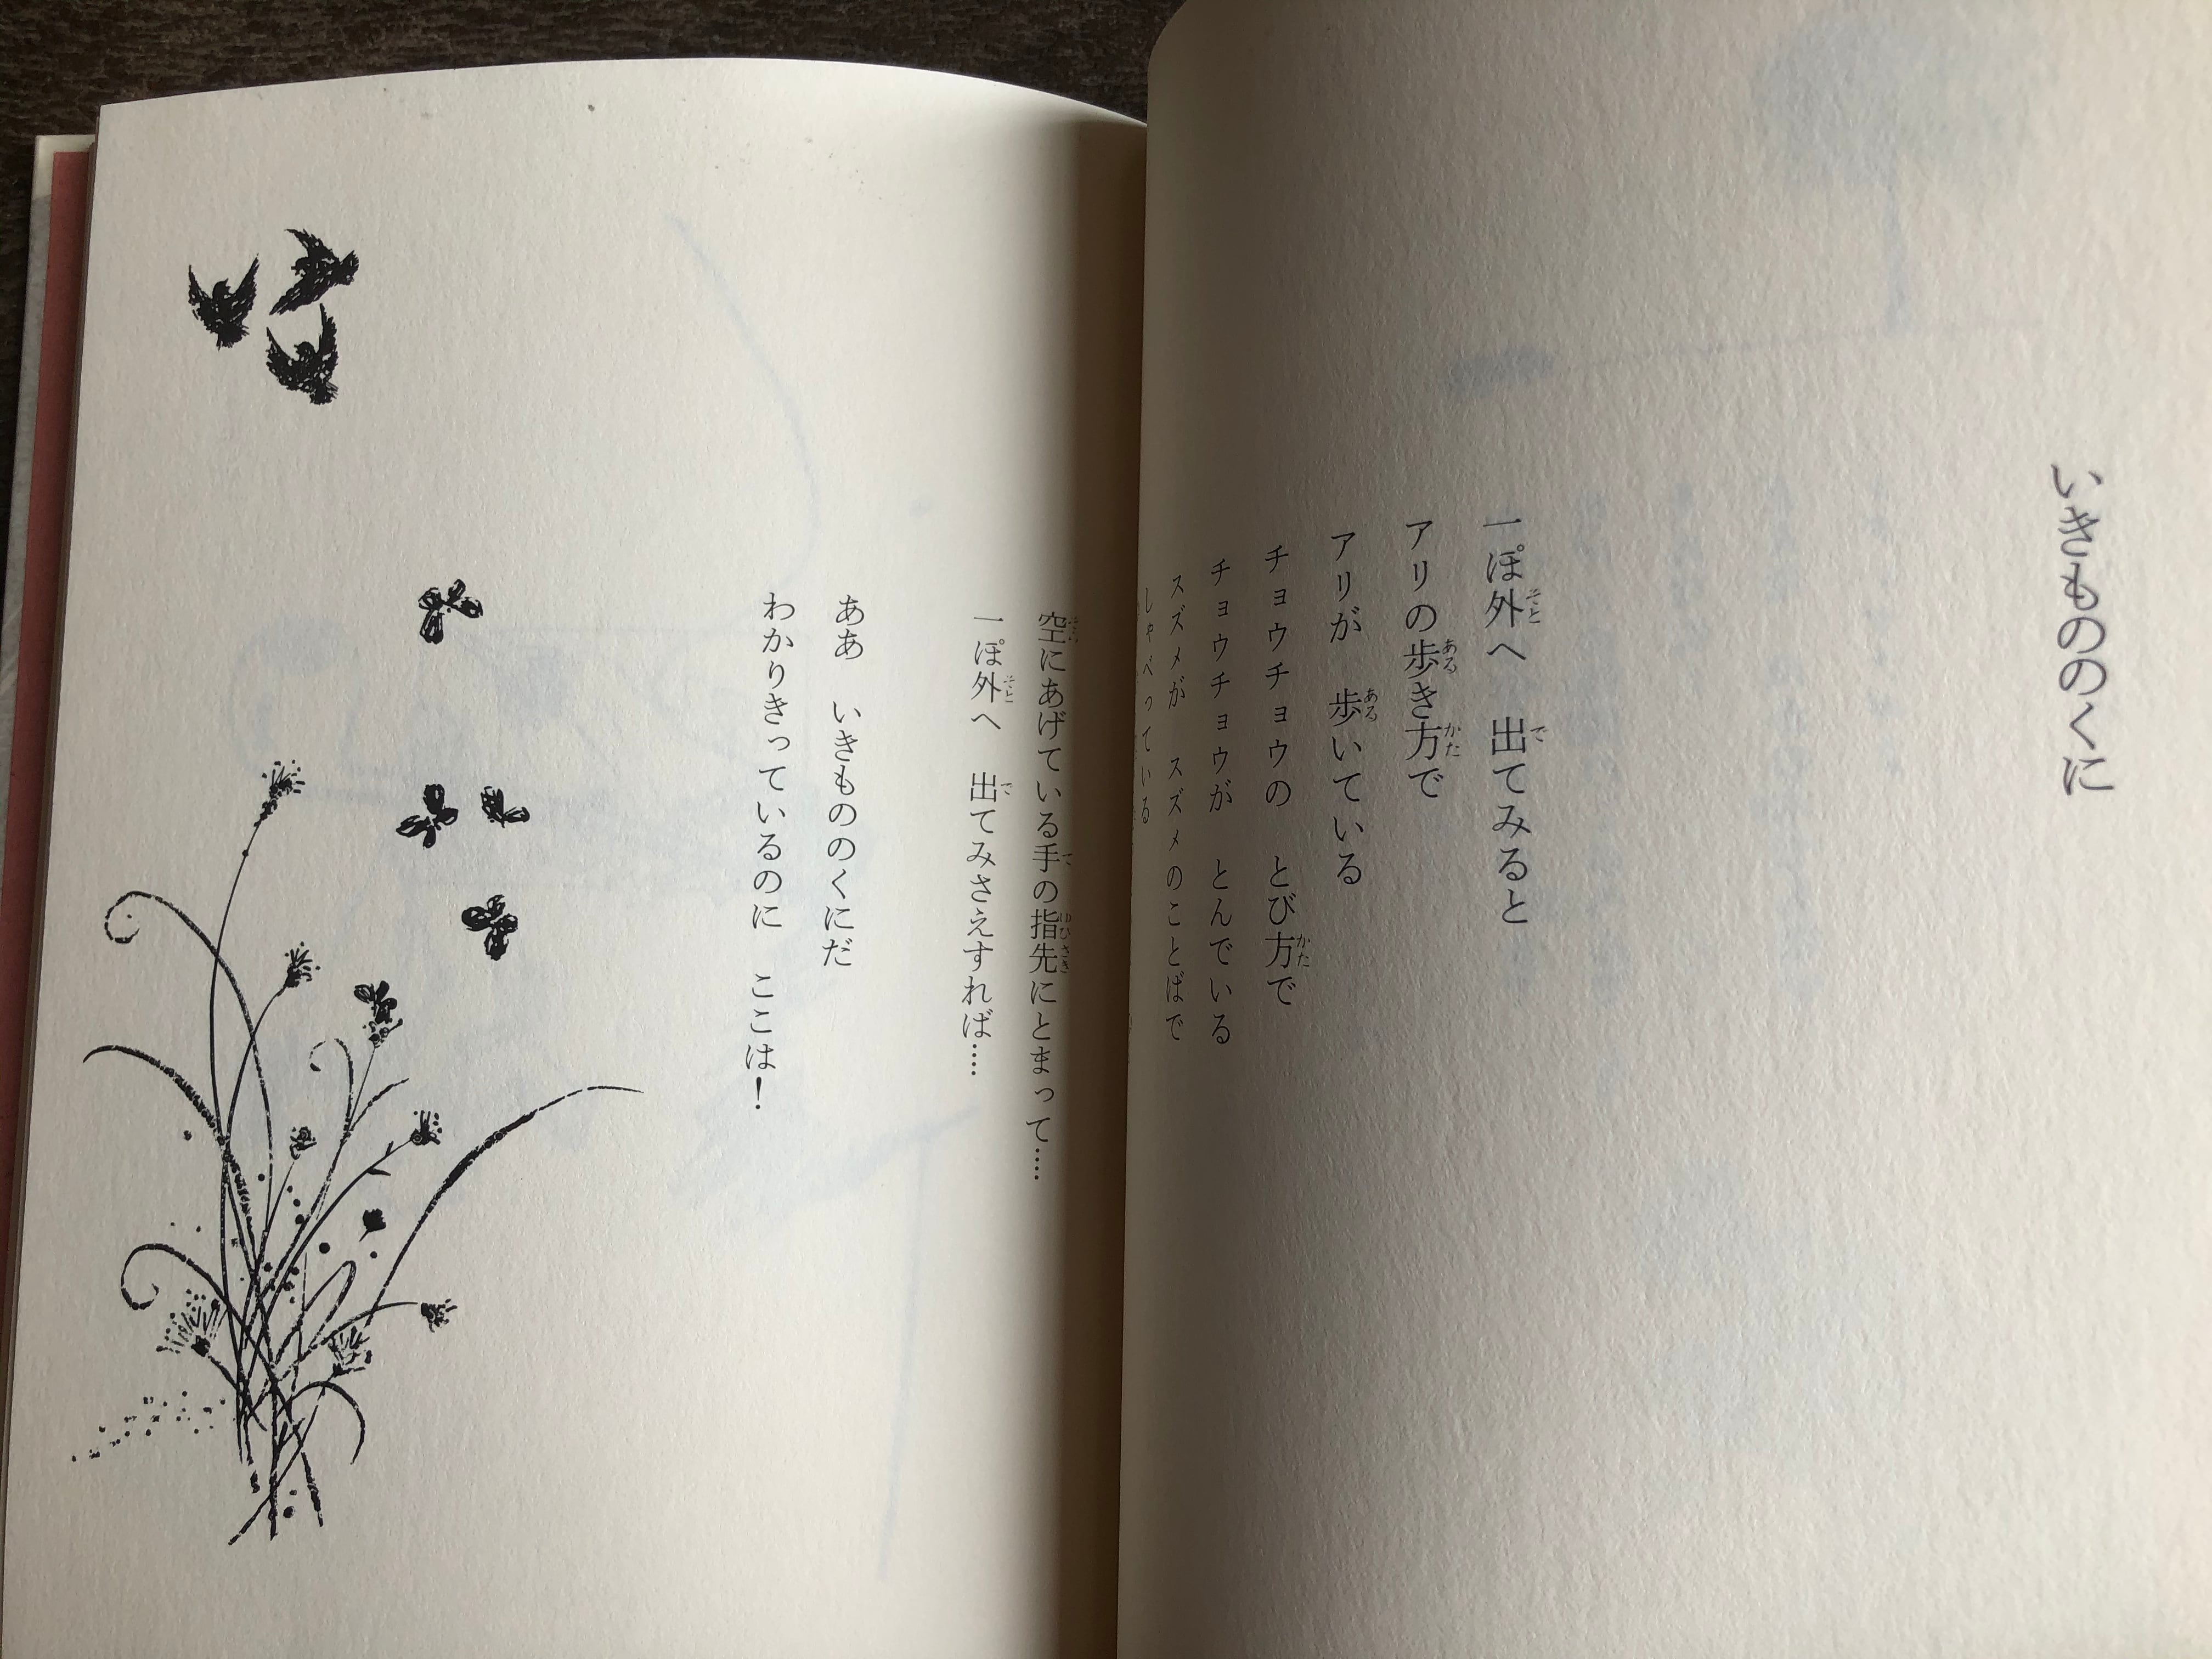 いきもののくに
一ぽ外へ　出てみると
アリの歩き方で
アリが　歩いている
チョウチョウの　とび方で
チョウチョウが　とんでいる
スズメが　スズメのことばで
しゃべっている
空にあげている手の指先にとまって……
一ぽ外へ　出てみさえすれば……
ああ　いきもののくにだ
わかりきっているのに　ここは！